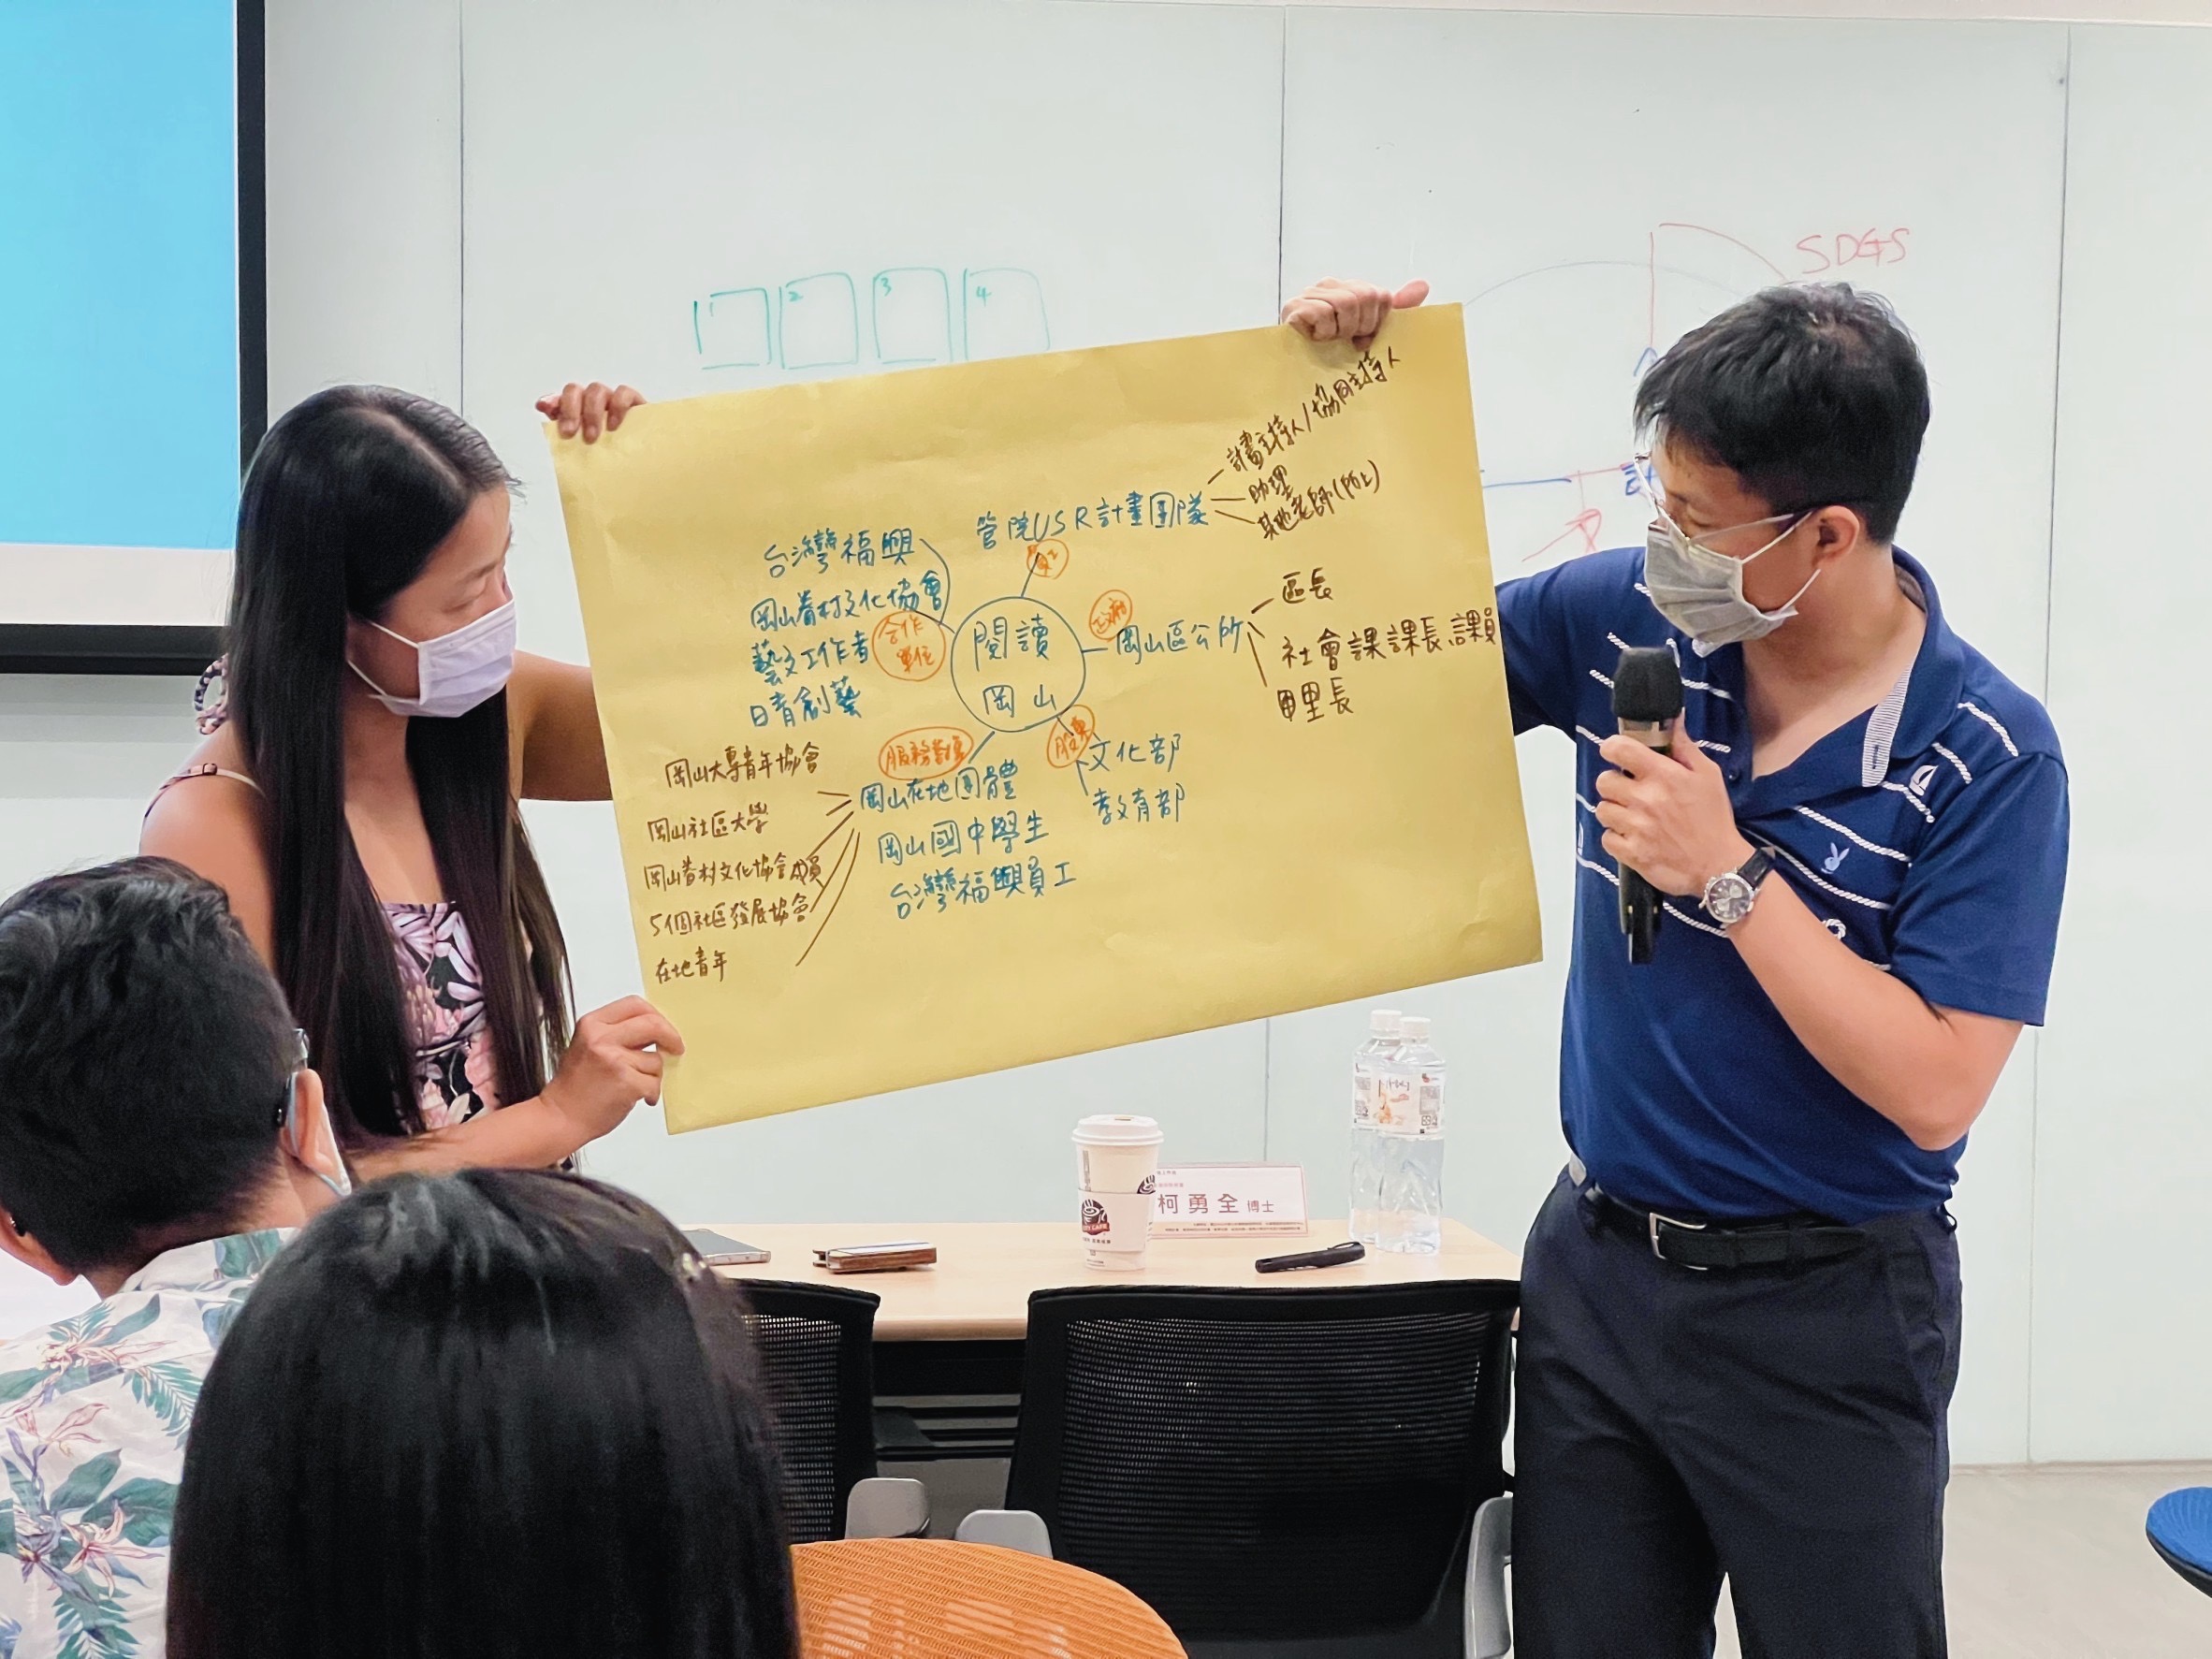 SDGS
1
2
3
4
計畫主持人/協同主持人
助理
其他老師(所上)
管院USR計畫團隊
員工
台灣福興
岡山眷村文化協會
藝文工作者
日青創藝
合作
單位
閱讀
岡山
政府
岡山區公所
區長
社會課課長、課員
里長
股東
文化部
教育部
服務對象
岡山在地團體
岡山國中學生
台灣福興員工
岡山大專青年協會
岡山社區大學
岡山眷村文化協會成員
5個社區發展協會
在地青年
柯勇全 博士